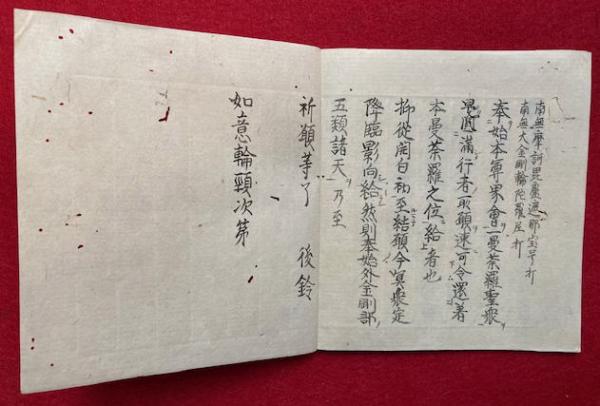 南無摩訶毘盧遮那宝号打
南無大金剛輪陀羅尼打
奉始本尊界會一曼荼羅聖衆
圓滿行者所願速可令還著
本曼荼羅之位給者也
抑從開白初至結願今冥衆定
降臨影向給然則奉始外金剛部
五類諸天乃至
祈願等了 後鈴
如意輪次第